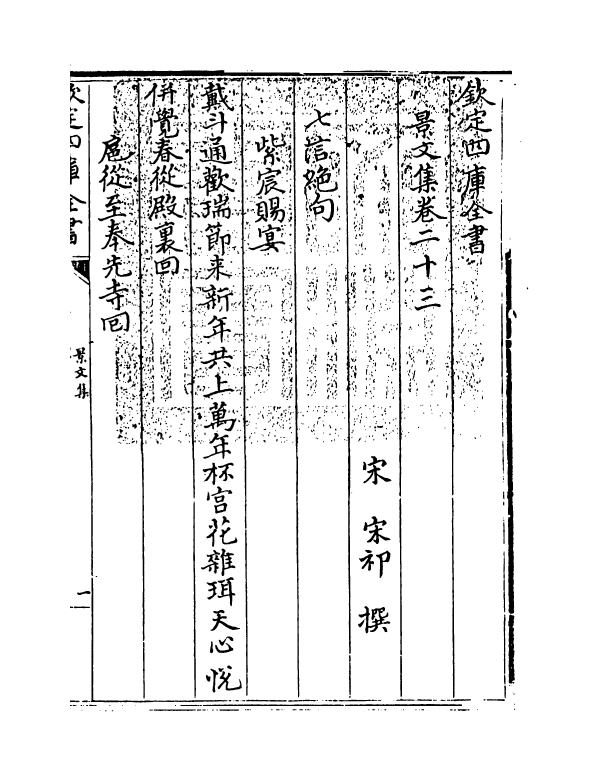 欽定四庫全書
景文集卷二十三
宋　宋祁　撰
七言絶句
紫宸賜宴
戴斗通歡瑞節来新年共上萬年杯宫花雜珥天心悦
併覺春從殿裏回
扈從至奉先寺回
欽定四庫全書
景文集
一